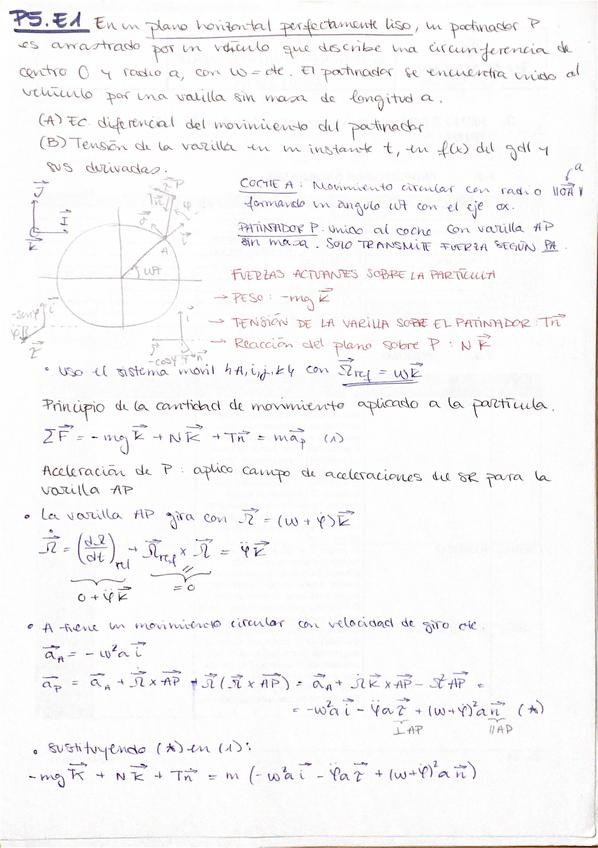 P5.E1 En un plano horizontal perfectamente liso, un patinador P
es arrastrado por un vehículo que describe una circunferencia de
centro O y radio a, con ω = cte. El patinador se encuentra unido al
vehículo por una varilla sin masa de longitud a.
(A) EC diferencial del movimiento del patinador
(B) Tensión de la varilla en un instante t, en f(x) del gdl y
sus derivadas.
COCHE A: Movimiento circular con radio ||OA|| a
formando un ángulo ωt con el eje ox.
PATINADOR P: unido al coche con varilla AP
sin masa. SOLO TRANSMITE FUERZA SEGÚN PA.
J
I
K
P
Tn
φ
i
A
ωt
FUERZAS ACTUANTES SOBRE LA PARTÍCULA
→ PESO: -mg K
→ TENSIÓN DE LA VARILLA SOBRE EL PATINADOR: Tn
→ Reacción del plano sobre P: N K
-senφ i
τ
i
-cosφ
φ n
• Uso el sistema móvil {A,i,j,k} con Ω_ref = ωK
Principio de la cantidad de movimiento aplicado a la partícula.
ΣF = -mg K + N K + Tn = m a_P (1)
Aceleración de P: aplico campo de aceleraciones del SR para la
varilla AP
• La varilla AP gira con Ω = (ω + φ̇)K
Ω̇ = (dΩ/dt)_rel + Ω_ref × Ω = φ̈ K
0 + φ̈ K
= 0
• A tiene un movimiento circular con velocidad de giro cte.
a_A = -ω²a i
a_P = a_A + Ω̇ × AP + Ω(Ω × AP) = a_A + Ω̇ K × AP - Ω² AP =
= -ω²a i - φ̈ a τ + (ω+φ̇)² a n (*)
⊥AP
//AP
• sustituyendo (*) en (1):
-mg K + N K + Tn = m (-ω²a i - φ̈ a τ + (ω+φ̇)² a n)